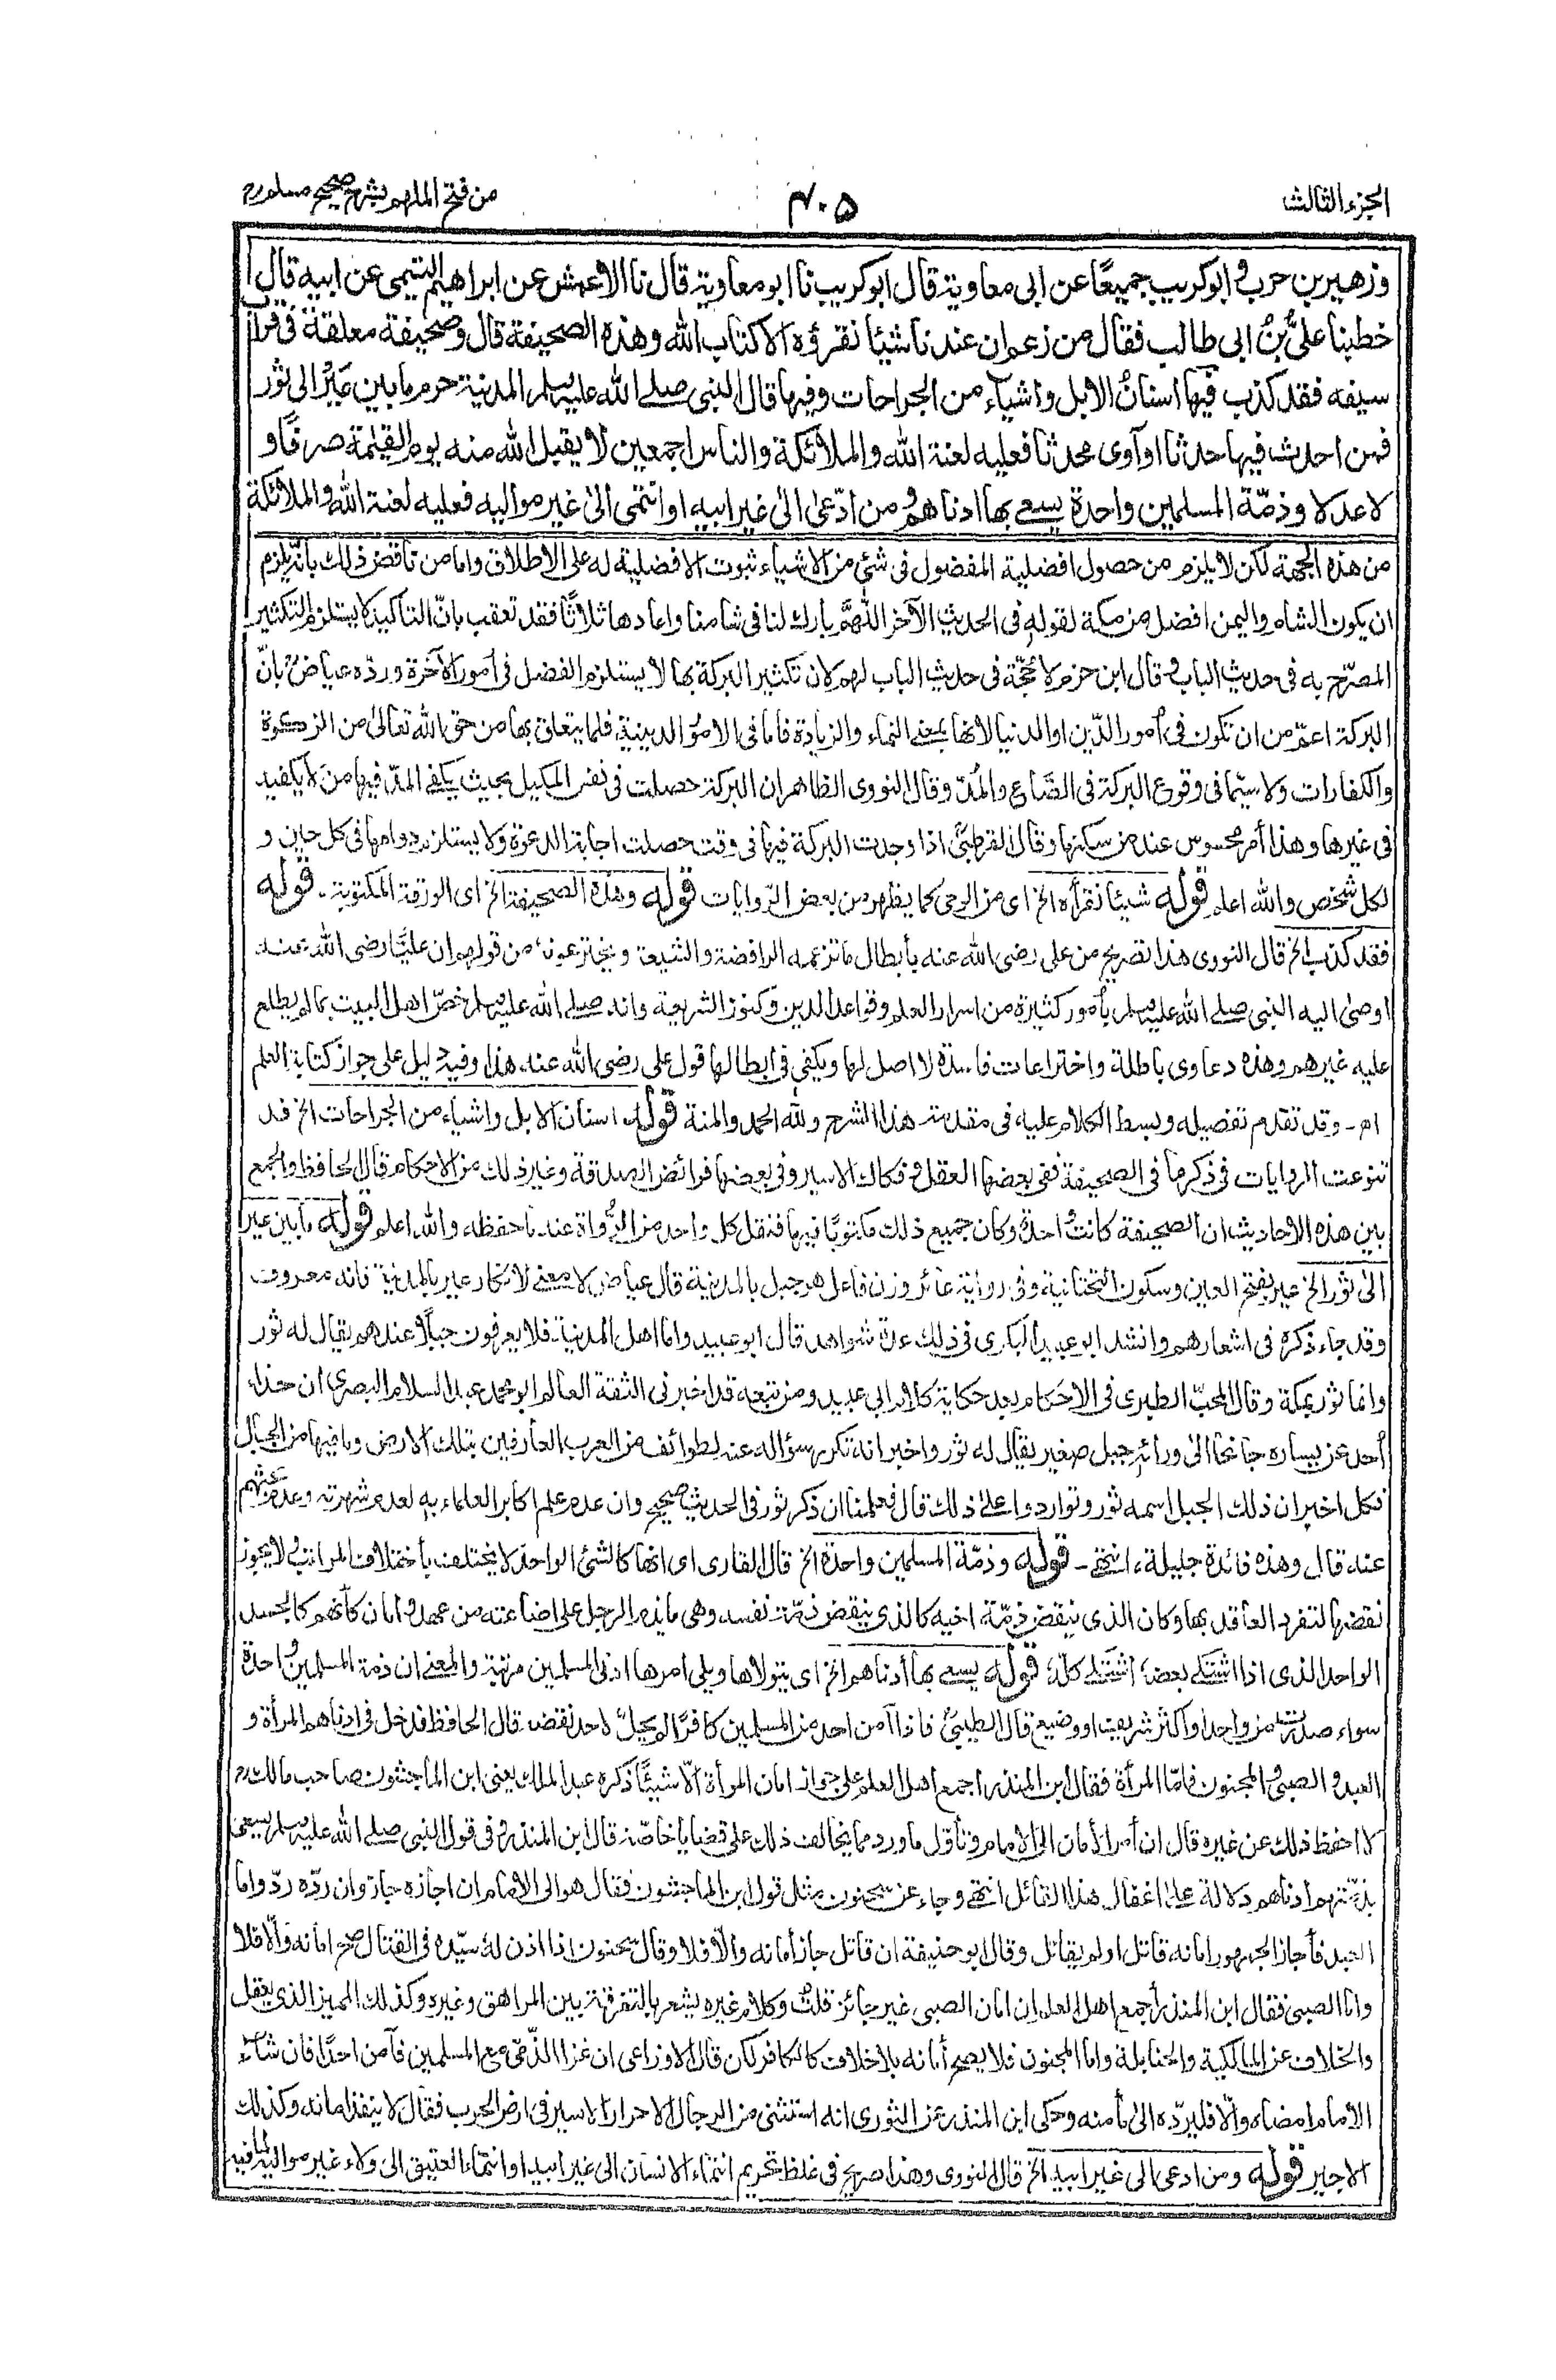 الجزء الثالث
٤٠٥
من فتح الملهم بشرح صحيح مسلم رح
وزهير بن حرب وابو كريب جميعًا عن ابى معاوية قال ابو كريب نا ابو معاوية قال نا الاعمش عن ابراهيم التيمى عن ابيه قال
خطبنا علىُّ بنُ ابى طالب فقال من زعم ان عندنا شيئا نقرؤه الا كتاب الله وهذه الصحيفة قال وصحيفة معلقة فى قراب
سيفه فقد كذب فيها اسنانُ الابل واشياء من الجراحات وفيها قال النبى صلے الله عليه وسلم المدينة حرم ما بين عَيْرٍ الى ثور
فمن احدث فيها حدثا او آوى محدثا فعليه لعنة الله والملائكة والناس اجمعين لا يقبل الله منه يوم القيٰمة صرفًا و
لا عدلا وذمّة المسلمين واحدة يسعے بها ادناهم ومن ادّعىٰ الىٰ غير ابيه او انتمٰى الىٰ غير مواليه فعليه لعنة الله والملائكة
من هذه الجهة لكن لا يلزم من حصول افضلية المفضول فى شئ من الاشياء ثبوت الافضلية له على الاطلاق واما من ناقض ذلك بانّه يلزم
ان يكون الشام واليمن افضل من مكة لقوله فى الحديث الآخر اللّٰهمَّ بارك لنا فى شامنا واعادها ثلاثًا فقد تعقب بانّ التاكيد لا يستلزم التكثير
المصرّح به فى حديث الباب وقال ابن حزم لا حُجّة فى حديث الباب لهم لان تكثير البركة بها لا يستلزم الفضل فى امور الآخرة وردّه عياض بانّ
البركة اعمّ من ان تكون فى امور الدّين او الدنيا لانها بمعنے النماء والزيادة فاما فى الامور الدينية فلما يتعلق بها من حق الله تعالىٰ من الزكوة
والكفارات ولا سيّما فى وقوع البركة فى الصَّاع والمُدّ وقال النووى الظاهر ان البركة حصلت فى نفس المكيل بحيث يكفے المدّ فيها من لا يكفيه
فى غيرها وهذا أمر محسوس عند من سكنها وقال القرطبىّ اذا وجدت البركة فيها فى وقت حصلت اجابة الدعوة ولا يستلزم دوامها فى كل حين و
لكل شخص والله اعلم قوله شيئا نقرأه الخ اى من الوحى كما يظهر من بعض الرّوايات قوله وهذه الصحيفة الخ اى الورقة المكتوبة۔ قوله
فقد كذب الخ قال النووى هذا تصريح من على رضى الله عنه بأبطال ما تزعمه الرافضة والشيعة ويخترعونه من قولهم ان عليًّا رضى الله عنه
اوصىٰ اليه النبى صلے الله عليه وسلم بأمور كثيرة من اسرار العلم وقواعد الدين وكنوز الشريعة وانه صلے الله عليه وسلم خصّ اهل البيت بما لم يطلع
عليه غيرهم وهذه دعاوى باطلة واختراعات فاسدة لا اصل لها ويكفى فى ابطالها قول على رضى الله عنه هذا وفيه دليل على جواز كتابة العلم
اھ۔ وقد تقدم تفصيله وبسط الكلام عليه فى مقدمة هذا الشرح ولله الحمد والمنة قوله اسنان الابل واشياء من الجراحات الخ قد
تنوعت الروايات فى ذكر ما فى الصحيفة ففى بعضها العقل وفكاك الاسير وفى بعضها فرائض الصدقة وغير ذلك من الاحكام قال الحافظ والجمع
بين هذه الاحاديث ان الصحيفة كانت واحدة وكان جميع ذلك مكتوبًا فيها فنقل كل واحد من الرُّواة عنه ما حفظه والله اعلم قوله ما بين عير
الىٰ ثور الخ عير بفتح العين وسكون التحتانية وفى رواية عائر وزن فاعل هو جبل بالمدينة قال عياض لا معنے لانكار عير بالمدينة فانه معروف
وقد جاء ذكره فى اشعارهم وانشد ابو عبيد البكرى فى ذلك عدة شواهد قال ابو عبيد واما اهل المدينة فلا يعرفون جبلًا عندهم يقال له ثور
وانما ثور بمكة وقال المحبّ الطبرى فى الاحكام بعد حكاية كلام ابى عبيد ومن تبعه قد اخبرنى الثقة العالم ابو محمد عبد السلام البصرى ان حذاء
أُحد عن يساره جانحا الىٰ ورائه جبل صغير يقال له ثور واخبر انه تكرر سؤاله عنه لطوائف من العرب العارفين بتلك الارض وما فيها من الجبال
فكل اخبر ان ذلك الجبل اسمه ثور وتواردوا علىٰ ذلك قال فعلمنا ان ذكر ثور فى الحديث صحيح وان عدم علم اكابر العلماء به لعدم شهرته وعدم بحثهم
عنه قال وهذه فائدة جليلة، انتهے۔ قوله وذمّة المسلمين واحدة الخ قال القارى اى انها كالشئ الواحد لا يختلف بأختلاف المراتب ولا يجوز
نقضها لتفرد العاقد بها وكان الذى ينقض ذمّة اخيه كالذى ينقض ذمّة نفسه وهى ما يذم الرجل على اضاعته من عهد وامان كأنهم كالجسد
الواحد الذى اذا اشتكے بعضه اشتكے كلّه قوله يسعے بها أدناهم الخ اى يتولاها ويلى امرها ادنى المسلمين مرتبة والمعنے ان ذمة المسلمين واحدة
سواء صدرت من واحد او اكثر شريف او وضيع قال الطيبىّ فاذا آمن احد من المسلمين كافرًا لم يحلّ لاحد نقضه قال الحافظ فدخل فى ادناهم المرأة و
العبد والصبى والمجنون فامّا المرأة فقال ابن المنذر اجمع اهل العلم على جواز امان المرأة الّا شيئًا ذكره عبد الملك يعنى ابن الماجشون صاحب مالك رح
لا احفظ ذلك عن غيره قال ان أمر الأمان الى الامام وتأوّل ما ورد مما يخالف ذلك على قضايا خاصّة قال ابن المنذر وفى قول النبى صلے الله عليه وسلم يسعى
بذمّتهم ادناهم دلالة علىٰ اغفال هذا القائل انتهے وجاء عن سحنون مثل قول ابن الماجشون فقال هو الى الامام ان اجازه جاز وان ردّه ردّ واما
العبد فأجاز الجمهور امانه قاتل او لم يقاتل وقال ابو حنيفة ان قاتل جاز أمانه والّا فلا وقال سحنون اذا اذن له سيّده فى القتال صح امانه والّا فلا
واما الصبى فقال ابن المنذر أجمع اهل العلم ان امان الصبى غير جائز قلت وكلام غيره يشعر بالتفرقة بين المراهق وغيره وكذلك المميز الذى يعقل
والخلاف عن المالكية والحنابلة واما المجنون فلا يصح أمانه بلا خلاف كالكافر لكن قال الاوزاعى ان غزا الذّمى مع المسلمين فآمن احدًا فان شاء
الامام امضاه والّا فليردّه الىٰ مأمنه وحكى ابن المنذر عن الثورى انه استثنى من الرجال الاحرار الاسير فى ارض الحرب فقال لا ينفذ امانه وكذلك
الاجير قوله ومن ادعى الى غير ابيه الخ قال النووى وهذا صريح فى غلظ تحريم انتماء الانسان الى غير ابيه او انتماء العتيق الى ولاء غير مواليه لما فيه